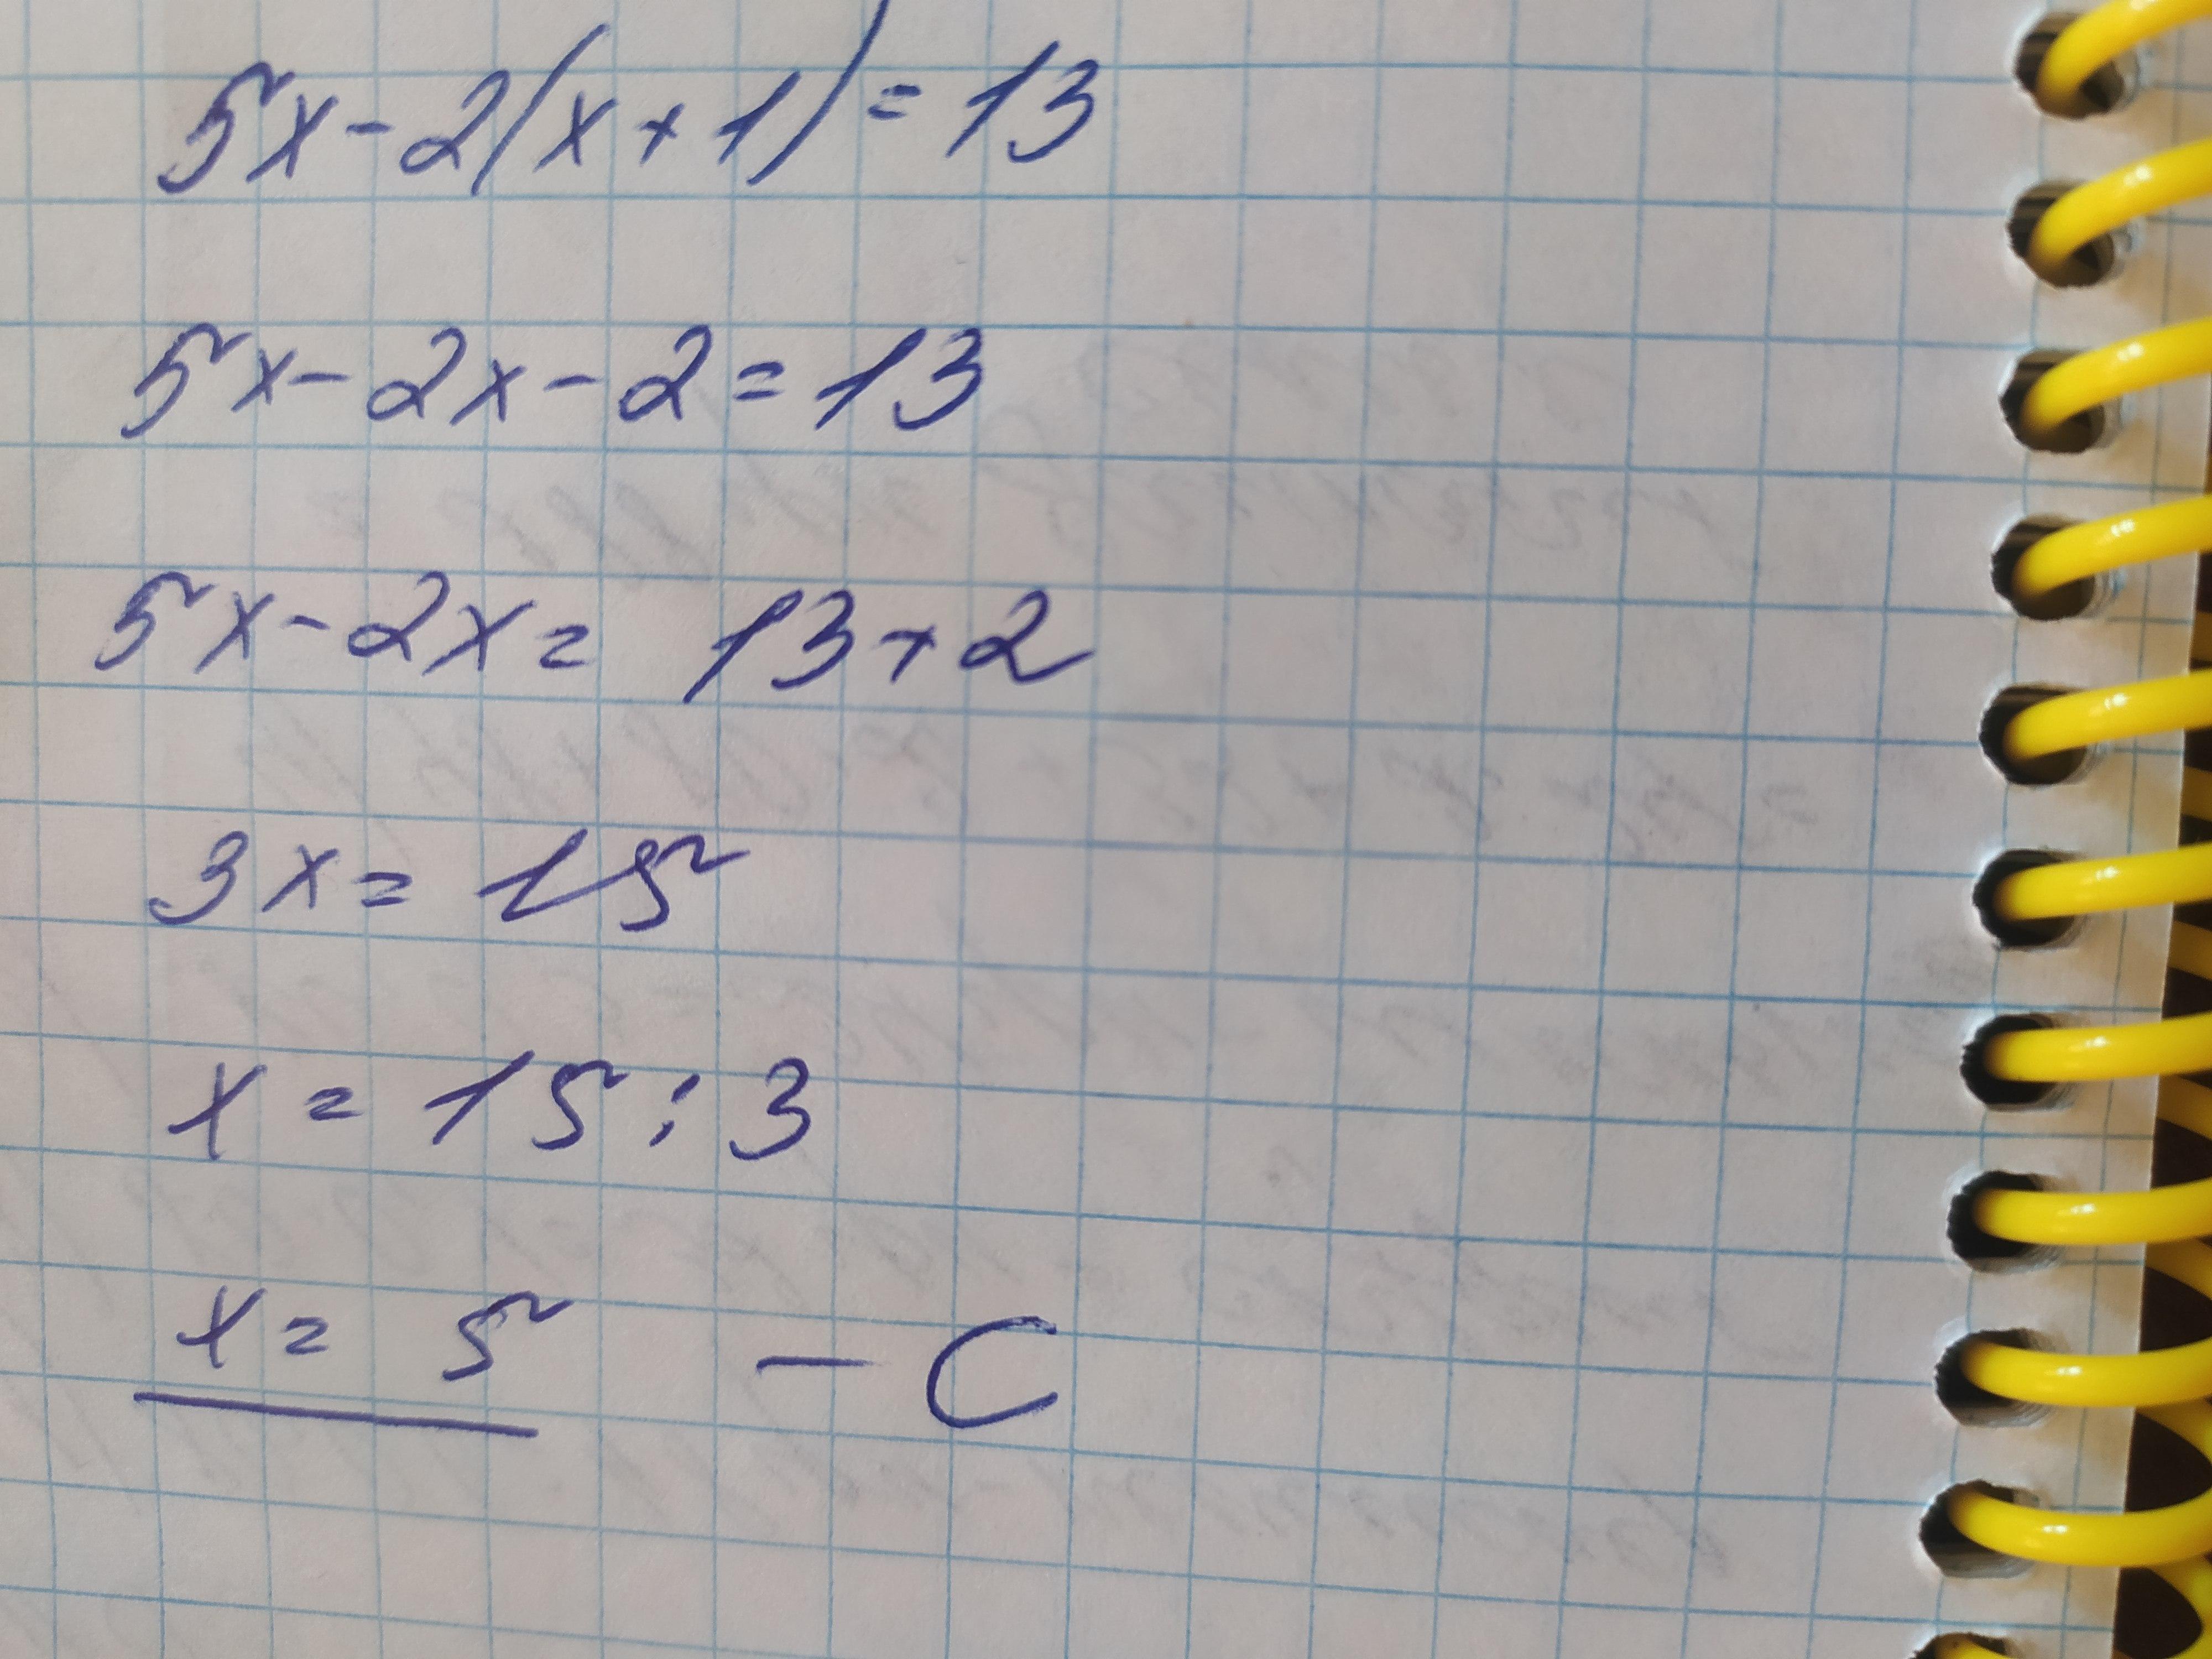 5x-2(x+1)=13
5x-2x-2=13
5x-2x= 13+2
3x=15
x=15:3
x=5 - C